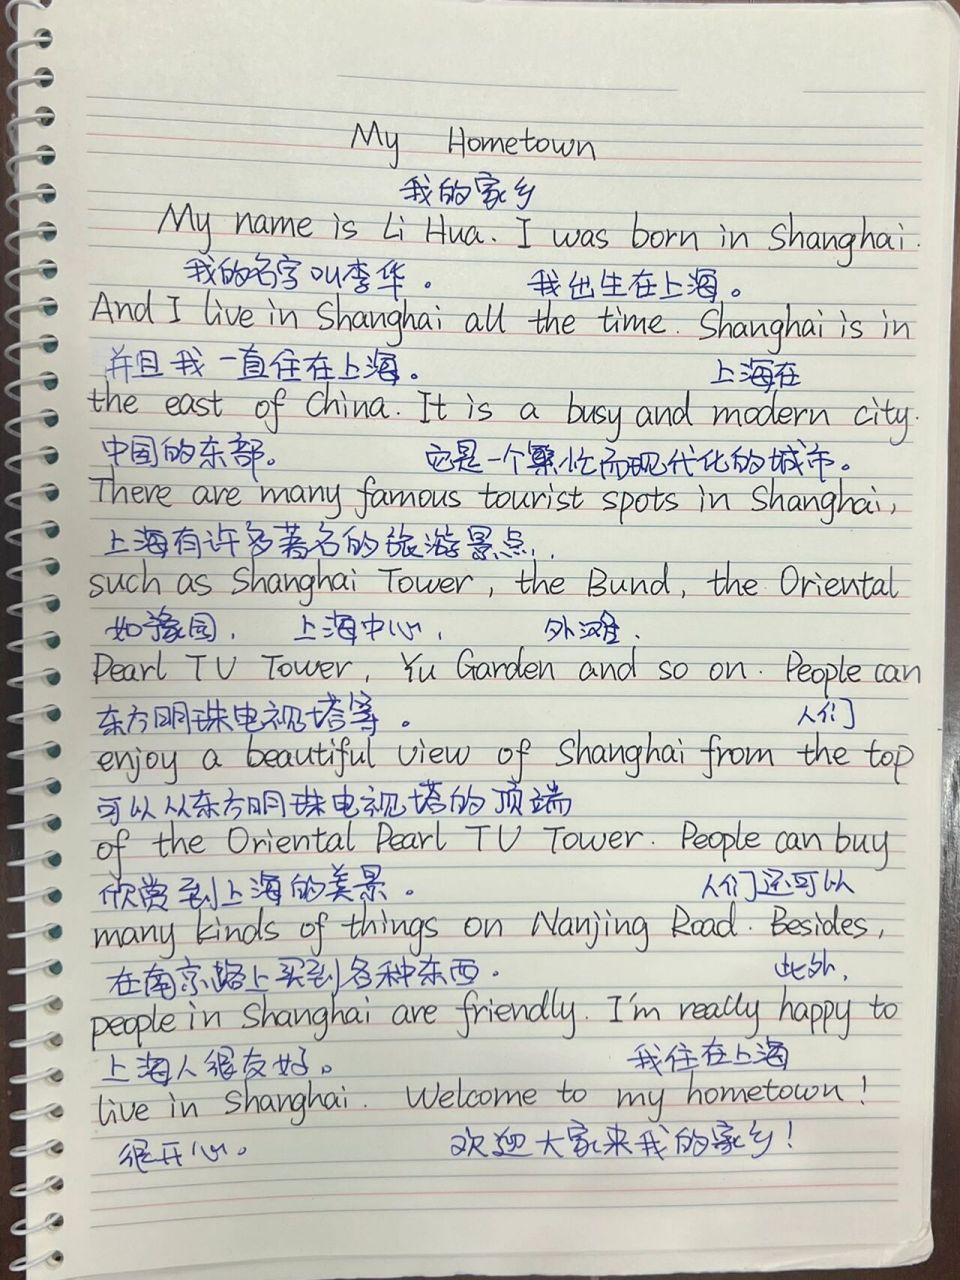 My Hometown
我的家乡
My name is Li Hua. I was born in Shanghai.
我的名字叫李华。 我出生在上海。
And I live in Shanghai all the time. Shanghai is in
并且我一直住在上海。 上海在
the east of China. It is a busy and modern city.
中国的东部。 它是一个繁忙而现代化的城市。
There are many famous tourist spots in Shanghai,
上海有许多著名的旅游景点,
such as Shanghai Tower, the Bund, the Oriental
如豫园, 上海中心, 外滩,
Pearl TV Tower, Yu Garden and so on. People can
东方明珠电视塔等。 人们
enjoy a beautiful view of Shanghai from the top
可以从东方明珠电视塔的顶端
of the Oriental Pearl TV Tower. People can buy
欣赏到上海的美景。 人们还可以
many kinds of things on Nanjing Road. Besides,
在南京路上买到各种东西. 此外,
people in Shanghai are friendly. I'm really happy to
上海人很友好。 我住在上海
live in Shanghai. Welcome to my hometown!
很开心。 欢迎大家来我的家乡!